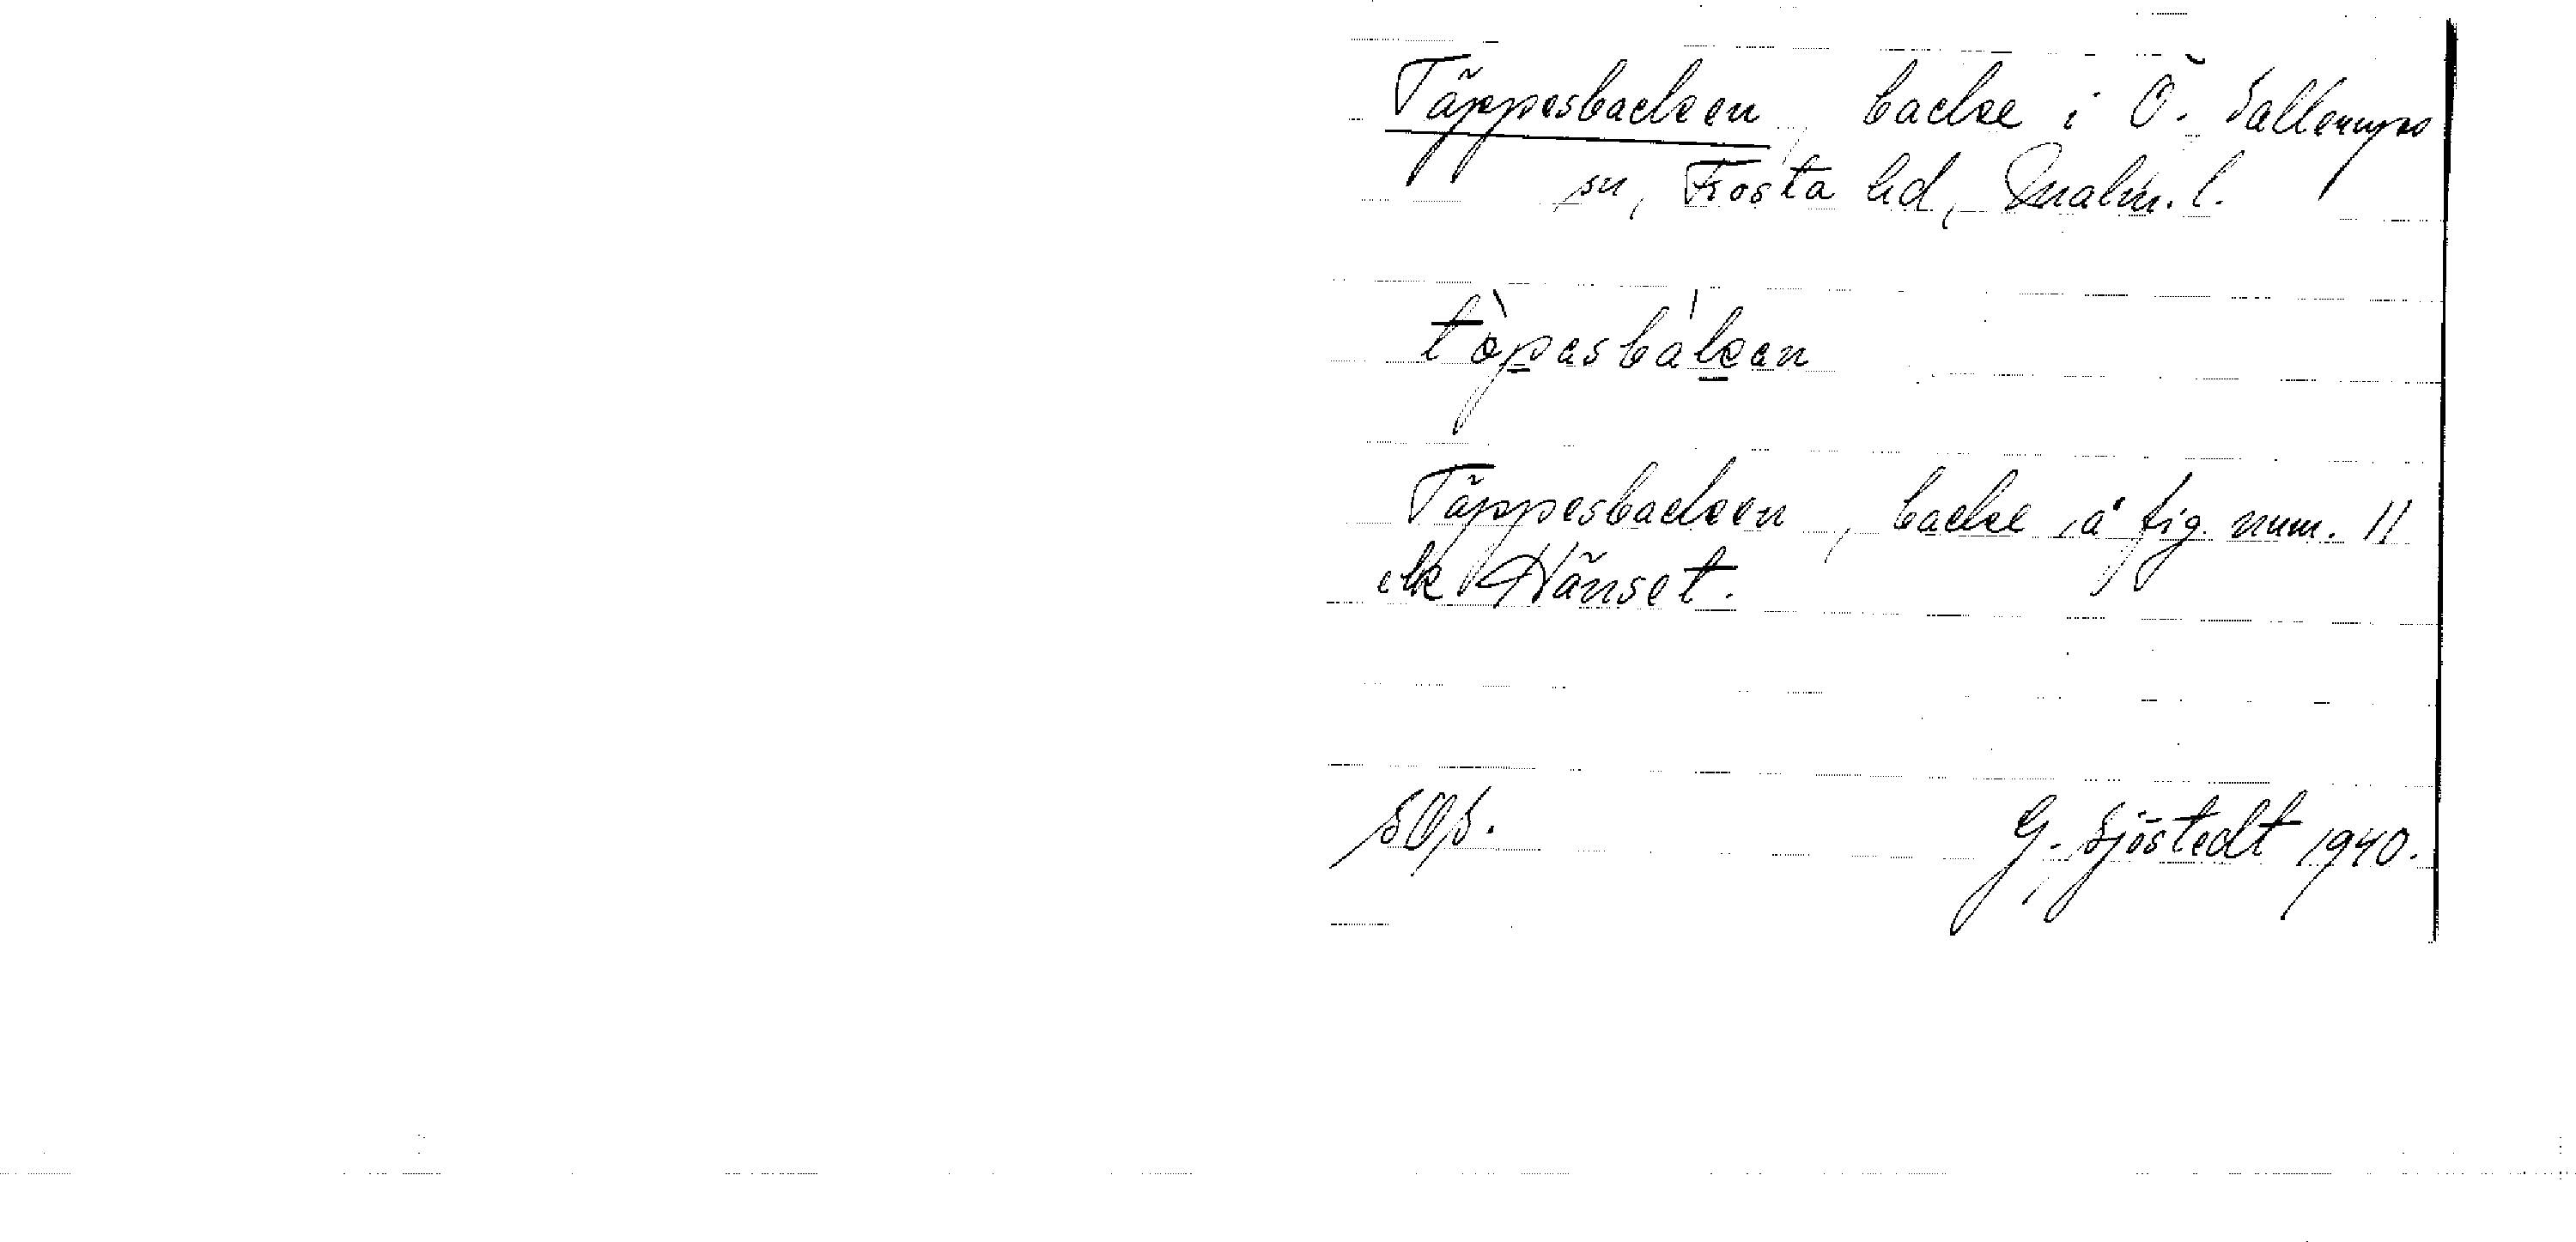 Täppesbacken, backe i Ö. Sallerups
sn, Frosta hd, Malm. l.
tòpesbàken
Täppesbacken, backe å fig. num. 11
elr Hänset.
SOS.
G. Sjöstedt 1940.